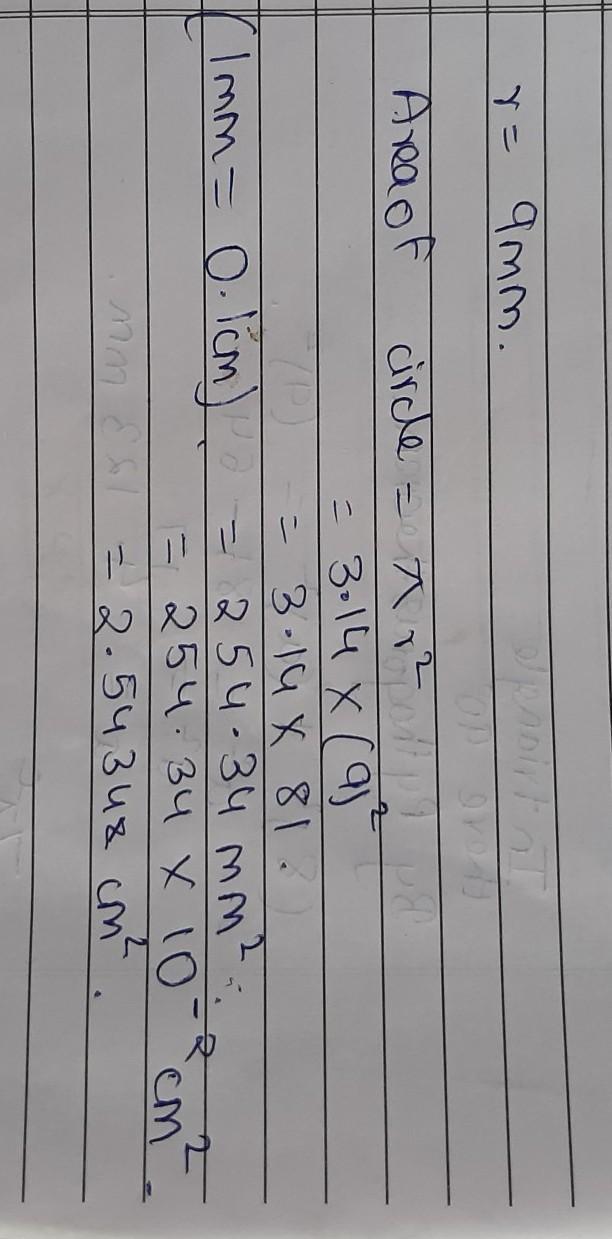 r = 9mm.
Area of circle = πr²
= 3.14 × (9)²
= 3.14 × 81
(1mm = 0.1cm) = 254.34 mm²
= 254.34 × 10⁻² cm².
= 2.5434 cm².